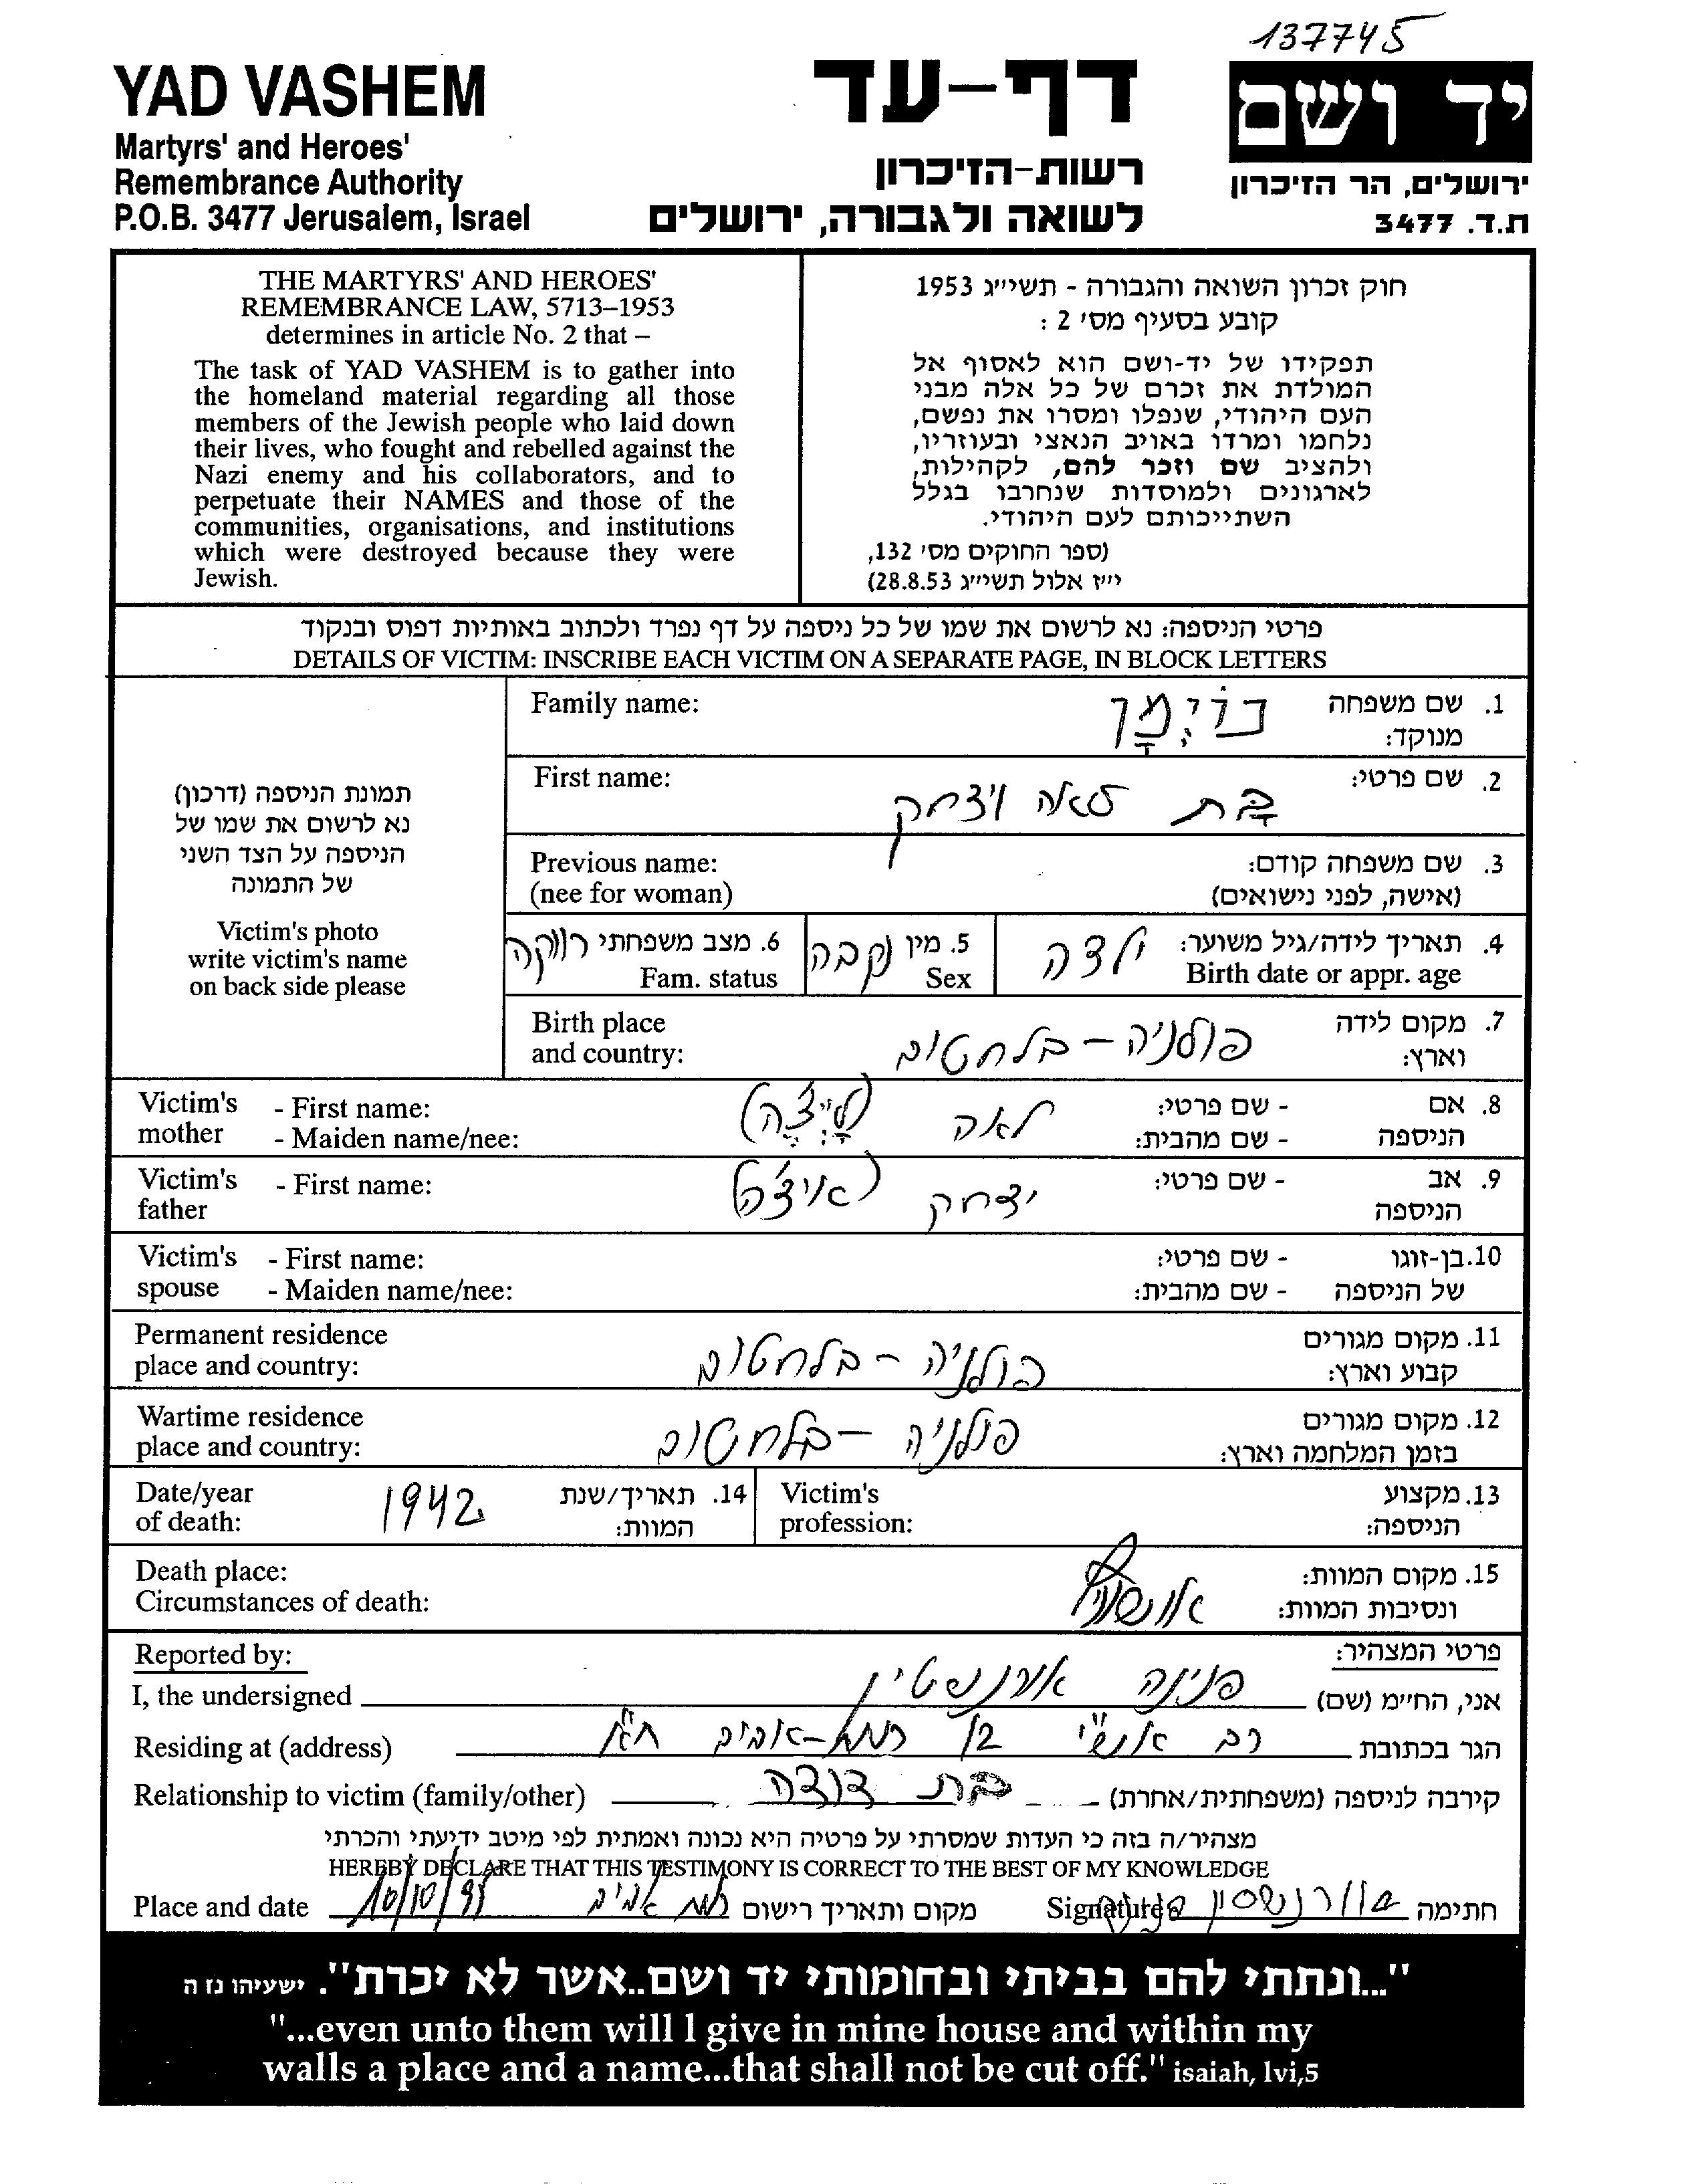 137745
YAD VASHEM
Martyrs' and Heroes'
Remembrance Authority
P.O.B. 3477 Jerusalem, Israel
דף-עד
רשות-הזיכרון
לשואה ולגבורה, ירושלים
יד ושם
ירושלים, הר הזיכרון
ת.ד. 3477
THE MARTYRS' AND HEROES'
REMEMBRANCE LAW, 5713–1953
determines in article No. 2 that –
The task of YAD VASHEM is to gather into
the homeland material regarding all those
members of the Jewish people who laid down
their lives, who fought and rebelled against the
Nazi enemy and his collaborators, and to
perpetuate their NAMES and those of the
communities, organisations, and institutions
which were destroyed because they were
Jewish.
חוק זכרון השואה והגבורה - תשי״ג 1953
קובע בסעיף מס׳ 2 :
תפקידו של יד-ושם הוא לאסוף אל
המולדת את זכרם של כל אלה מבני
העם היהודי, שנפלו ומסרו את נפשם,
נלחמו ומרדו באויב הנאצי ובעוזריו,
ולהציב שם וזכר להם, לקהילות,
לארגונים ולמוסדות שנחרבו בגלל
השתייכותם לעם היהודי.
(ספר החוקים מס׳ 132,
י״ז אלול תשי״ג 28.8.53)
פרטי הניספה: נא לרשום את שמו של כל ניספה על דף נפרד ולכתוב באותיות דפוס ובנקוד
DETAILS OF VICTIM: INSCRIBE EACH VICTIM ON A SEPARATE PAGE, IN BLOCK LETTERS
תמונת הניספה (דרכון)
נא לרשום את שמו של
הניספה על הצד השני
של התמונה
Victim's photo
write victim's name
on back side please
1. שם משפחה ברימן Family name:
מנוקד:
2. שם פרטי: בת לאה ויצחק First name:
3. שם משפחה קודם: Previous name:
(אישה, לפני נישואים) (nee for woman)
4. תאריך לידה/גיל משוער: ילדה 5. מין נקבה 6. מצב משפחתי רווקה
Birth date or appr. age Sex Fam. status
7. מקום לידה פולניה - בלחטוב Birth place
וארץ: and country:
8. אם - שם פרטי: לאה (לייצ'ה) Victim's - First name:
הניספה - שם מהבית: mother - Maiden name/nee:
9. אב - שם פרטי: יצחק (איצ'ה) Victim's - First name:
הניספה father
10. בן-זוגו - שם פרטי: Victim's - First name:
של הניספה - שם מהבית: spouse - Maiden name/nee:
11. מקום מגורים פולניה - בלחטוב Permanent residence
קבוע וארץ: place and country:
12. מקום מגורים פולניה - בלחטוב Wartime residence
בזמן המלחמה וארץ: place and country:
13. מקצוע Victim's 14. תאריך/שנת 1942 Date/year
הניספה: profession: המוות: of death:
15. מקום המוות: Death place:
ונסיבות המוות: Circumstances of death:
פרטי המצהיר: Reported by:
אני, החי״מ (שם) פנינה אורנשטין I, the undersigned
הגר בכתובת רב אשי 12 תל-אביב Residing at (address)
קירבה לניספה (משפחתית/אחרת) בת דודה Relationship to victim (family/other)
מצהיר/ה בזה כי העדות שמסרתי על פרטיה היא נכונה ואמתית לפי מיטב ידיעתי והכרתי
HEREBY DECLARE THAT THIS TESTIMONY IS CORRECT TO THE BEST OF MY KNOWLEDGE
חתימה Signature מקום ותאריך רישום תל אביב Place and date
"...ונתתי להם בביתי ובחומותי יד ושם..אשר לא יכרת". ישעיהו נז ה
"...even unto them will I give in mine house and within my
walls a place and a name...that shall not be cut off." isaiah, lvi,5